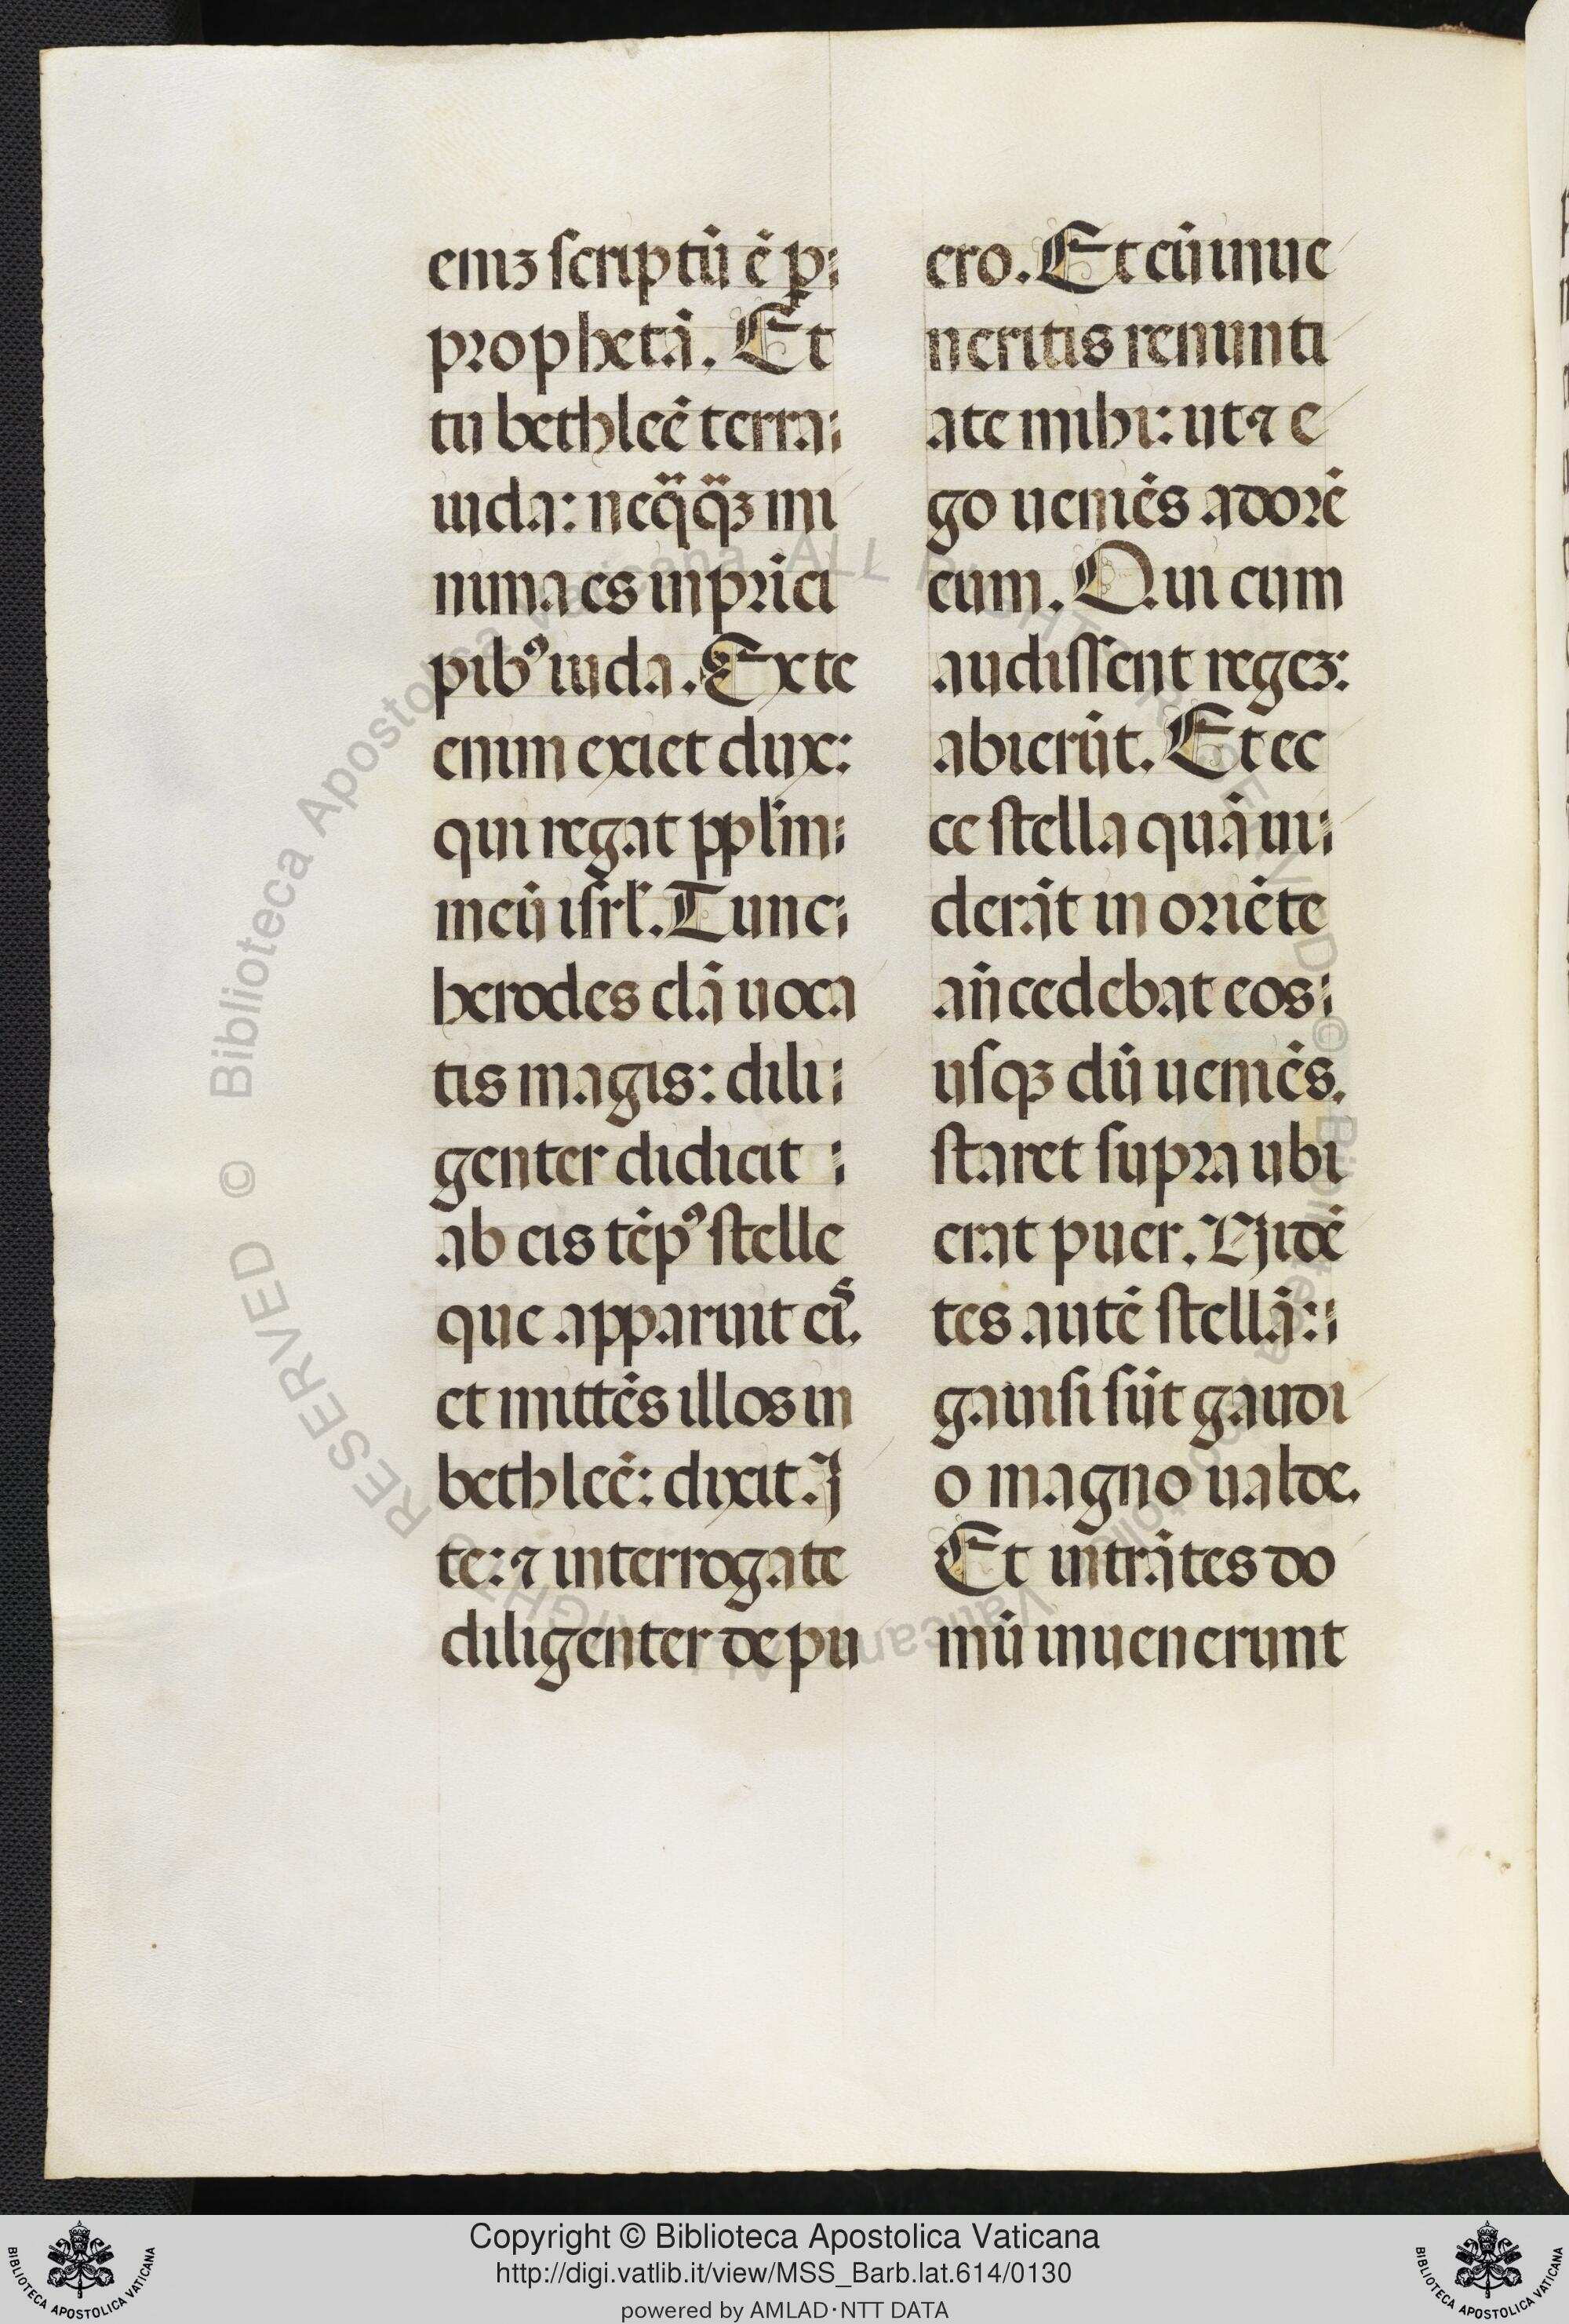 enīꝫ scriptū ē p
prophetā. Et
tu bethleē terra
iuda: neq̈q̈ꝫ mi
nima es in prici
pibꝰ iuda. Ex te
enim exiet dux:
qui regat pplm̄
meū isrl̄. Tunc
herodes clā uoca
tis magis: dili
genter didicit
ab eis tēpꝰ stelle
que apparuit eiˢ.
et mittēs illos in
bethleē: dixit. I
te: ⁊ interrogate
diligenter de pu
ero. Et cū inue
neritis renunti
ate mihi: ut ⁊ e
go ueniēs adorē
eum. Qui cum
audissent regeꝫ:
abierūt. Et ec
ce stella quā ui
derāt in oriēte
an̄cedebat eos
usqꝫ dū ueniēs.
staret supra ubi
erat puer. Uidē
tes autē stellā:
gauisi sūt gaudi
o magno ualde.
Et intrātes do
mū inuenerunt
© Biblioteca Apostolica Vaticana ALL RIGHTS RESERVED © Biblioteca Apostolica Vaticana ALL RIGHTS RESERVED
Copyright © Biblioteca Apostolica Vaticana
http://digi.vatlib.it/view/MSS_Barb.lat.614/0130
powered by AMLAD·NTT DATA
BIBLIOTECA APOSTOLICA VATICANA
BIBLIOTECA APOSTOLICA VATICANA